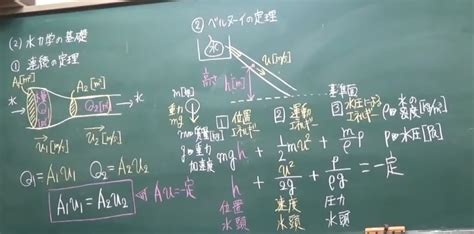 (2) 水力学の基礎
① 連続の定理
A₁[m²]
A₂[m²]
水
Q₂[m³]
水
v₁[m/s]
v₂[m/s]
Q₁=A₁v₁ Q₂=A₂v₂
A₁v₁ = A₂v₂
Av=一定
② ベルヌーイの定理
水
v[m/s]
高さ
h[m]
基準面
m[kg]
重力
mg
m 質量[kg]
g 重力
加速度
① 位置
エネルギー
② 運動
エネルギー
③ 水圧による
エネルギー
ρ 水の
密度[kg/m³]
p 水圧[Pa]
mgh + 1/2 mv² + m/ρ p
h + v²/2g + p/ρg = 一定
位置
水頭
速度
水頭
圧力
水頭